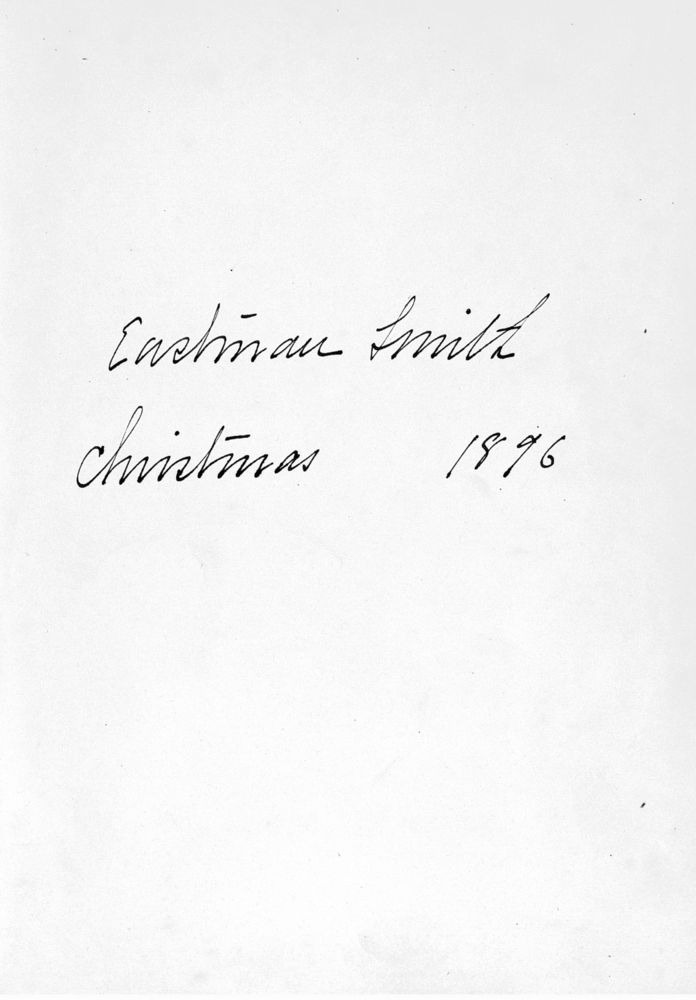 Eastman Smith
Christmas 1896